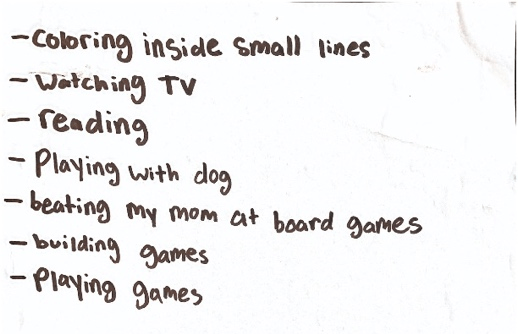 -Coloring inside small lines
- Watching TV
- reading
- Playing with dog
- beating my mom at board games
- building games
- Playing games